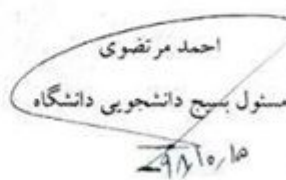 احمد مرتضوی
مسئول بسیج دانشجویی دانشگاه
۹۸/۱۰/۱۵